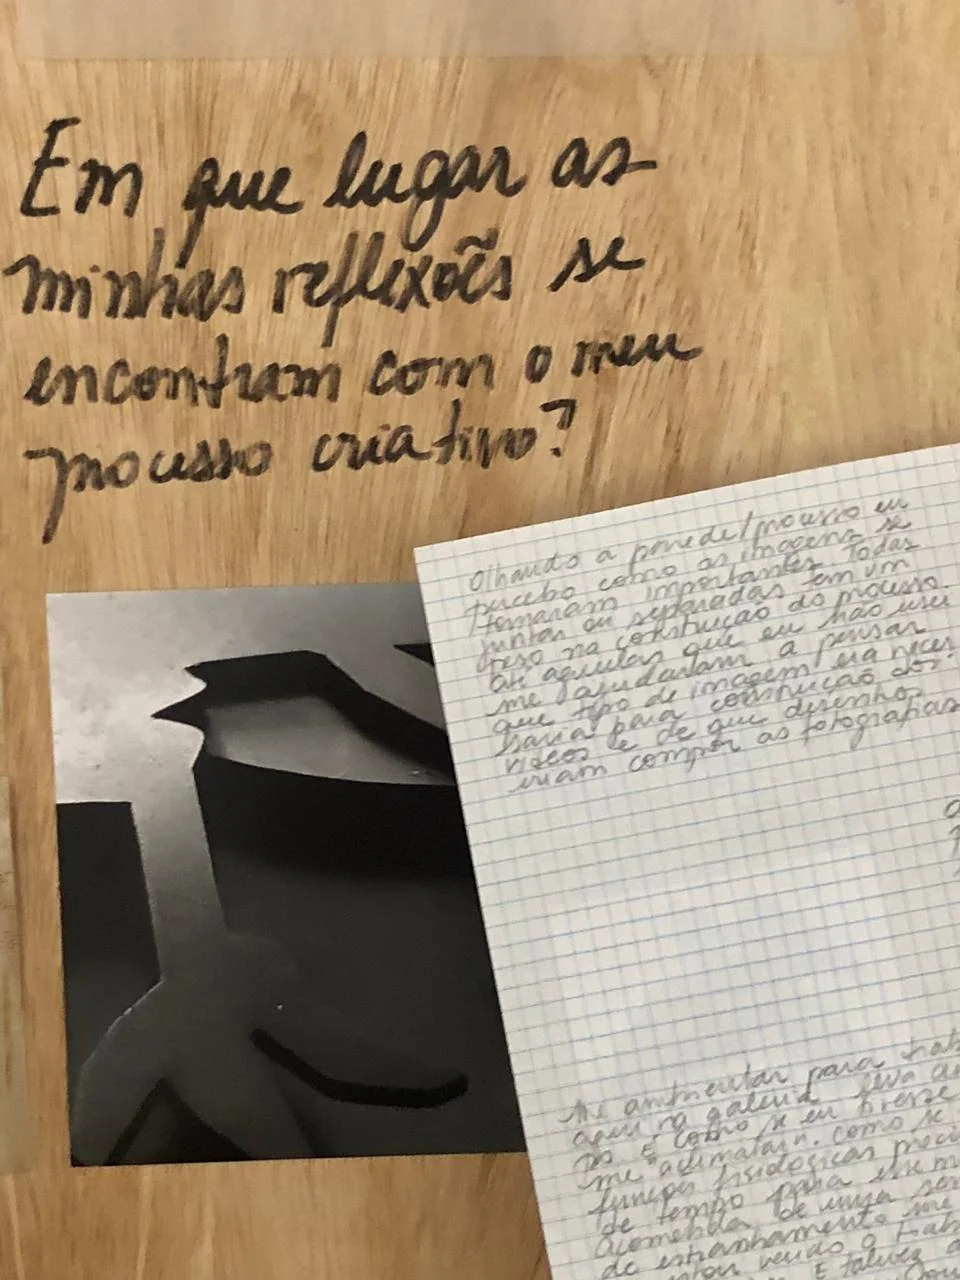 Em que lugar as
minhas reflexões se
encontram com o meu
processo criativo?
Olhando a parede/processo eu
percebo como as imagens se
tornaram importantes. Todas
juntas ou separadas tem um
peso na construção do processo.
até aquelas que eu não usei
me ajudaram a pensar
que tipo de imagem era neces
saria para construção dos
videos e de que desenho
iriam compor as fotografias
Me ambientar para trab
aqui na galeria leva
É como se eu tivesse
me aclimatar. como se
funções fisiologicas
de tempo para esse
acometida de uma
de estranhamento me
estou vendo o trab
E talvez